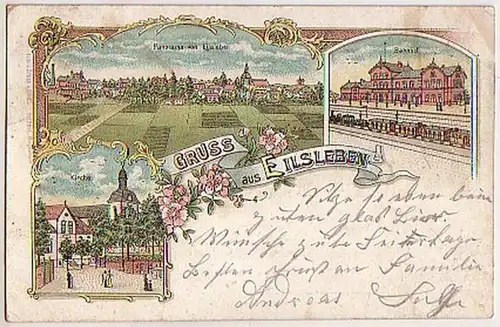 Panorama von Eilsleben
Bahnhof
GRUSS
AUS EILSLEBEN
Kirche
Sitze soeben beim
guten Glas Bier.
Wünsche gute Feiertage
Besten Gruß an Familie
Andreas